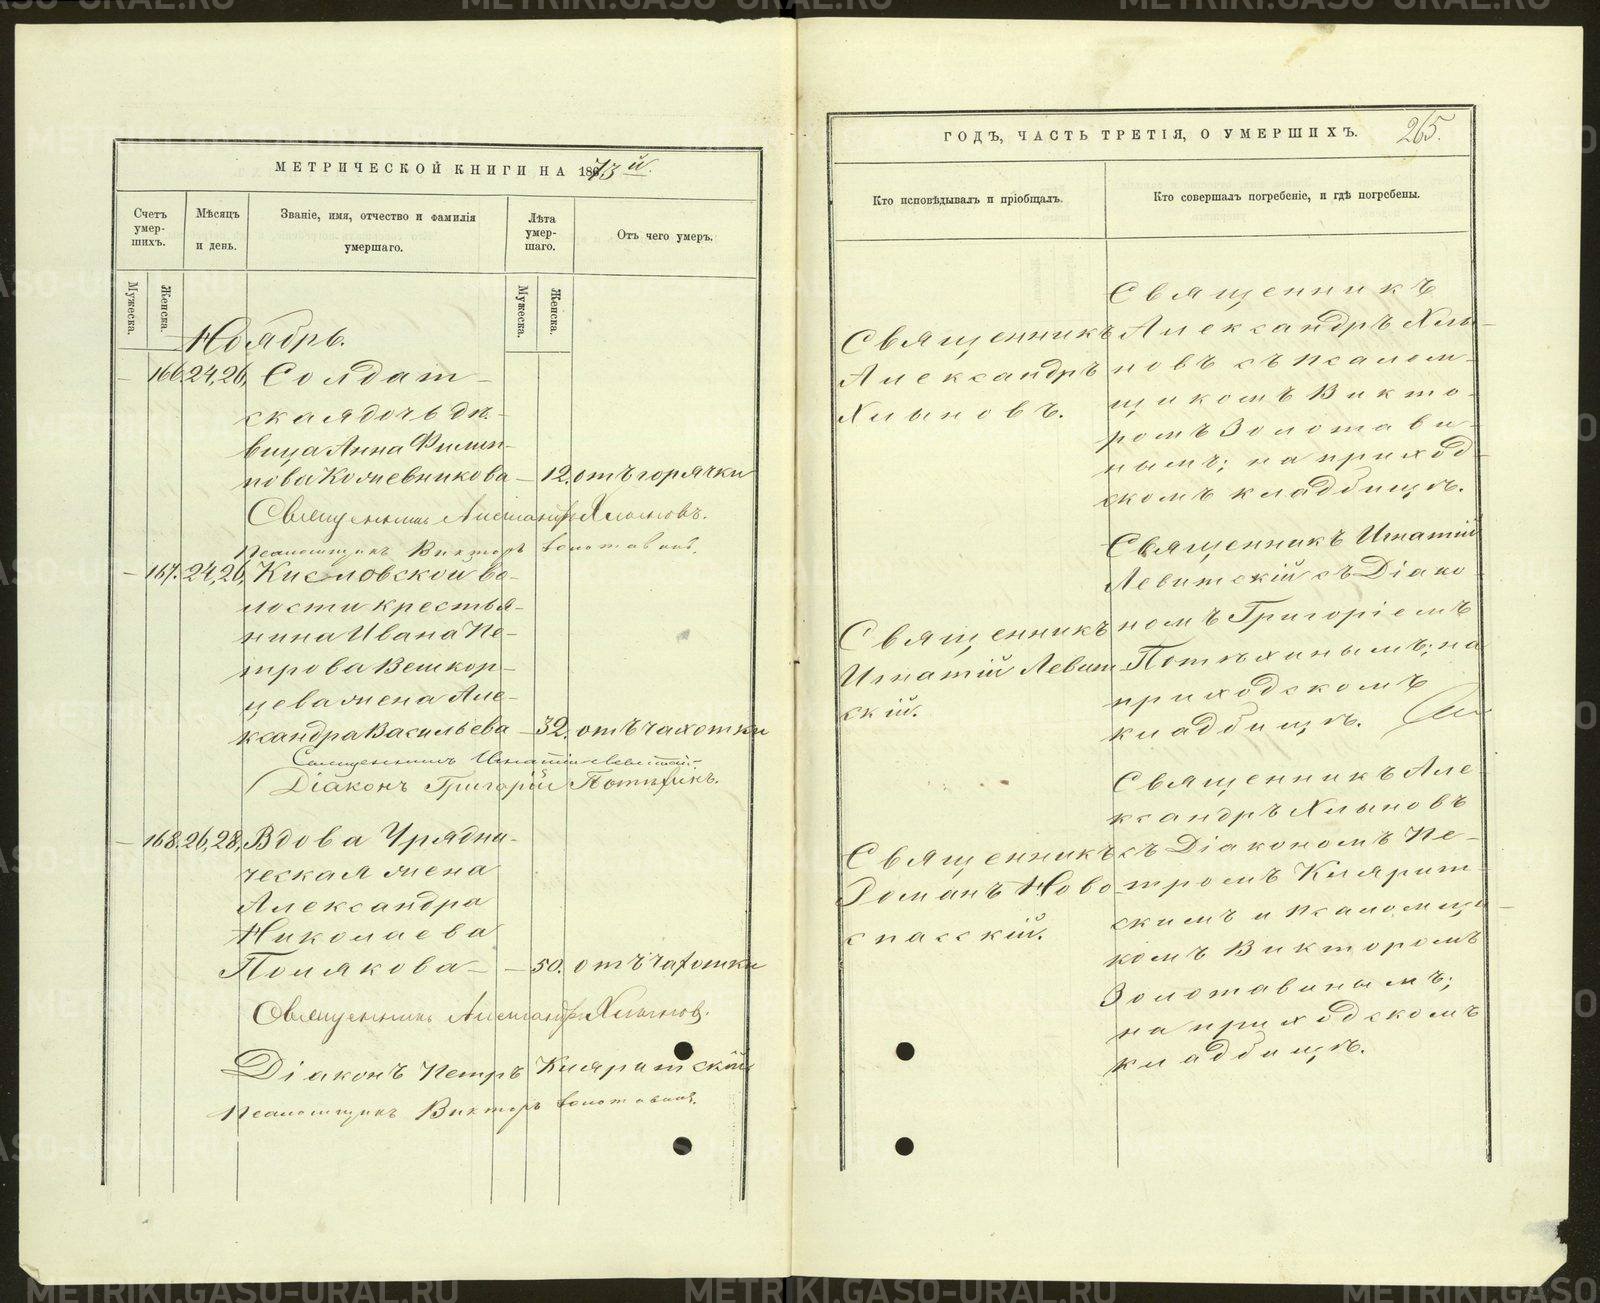 МЕТРИЧЕСКОЙ КНИГИ НА 1873й.
Счетъ умер-шихъ.
Мѣсяцъ и день.
Званіе, имя, отчество и фамилія умершаго.
Лѣта умер-шаго.
Отъ чего умеръ.
Мужеска.
Женска.
Мужеска.
Женска.
Ноябрь.
– 166. 24, 26, Солдат-
ская дочь дѣ-
вица Анна Филип-
пова Кожевникова – 12. отъ горячки
Священникъ Александръ Хлыновъ.
Псаломщикъ Викторъ Золотавинъ.
– 167. 24, 26, Кисловской во-
лости крестья-
нина Ивана Пе-
трова Вешкор-
цева жена Але-
ксандра Васильева – 32. отъ чахотки
Священникъ Игнатій Левитскій.
Діаконъ Григорій Потѣхинъ.
– 168. 26, 28, Вдова Урядни-
ческая жена
Александра
Николаева
Полякова – – 50. отъ чахотки
Священникъ Александръ Хлыновъ.
Діаконъ Петръ Кляритскій
Псаломщикъ Викторъ Золотавинъ.
ГОДЪ, ЧАСТЬ ТРЕТІЯ, О УМЕРШИХЪ. 265.
Кто исповѣдывалъ и пріобщалъ.
Кто совершалъ погребеніе, и гдѣ погребены.
Священникъ
Александръ
Хлыновъ.
Священникъ
Александръ Хлы-
новъ съ псалом-
щикомъ Викто-
ромъ Золотави-
нымъ; на приход-
скомъ кладбищѣ.
Священникъ
Игнатій Левит-
скій.
Священникъ Игнатій
Левитскій съ Діако-
номъ Григоріемъ
Потѣхинымъ; на
приходскомъ
кладбищѣ.
Священникъ
Романъ Ново-
спасскій.
Священникъ Але-
ксандръ Хлыновъ
съ Діакономъ Пе-
тромъ Клярит-
скимъ и псаломщи-
комъ Викторомъ
Золотавинымъ;
на приходскомъ
кладбищѣ.
METRIKI.GASO-URAL.RU